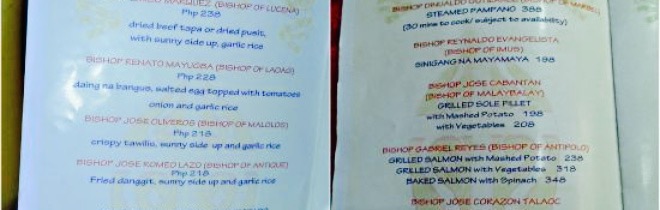 MARQUEZ (BISHOP OF LUCENA)
Php 238
dried beef tapa or dried pusit,
with sunny side up, garlic rice
BISHOP RENATO MAYUGBA (BISHOP OF LAOAG)
Php 228
daing na bangus, salted egg topped with tomatoes
onion and garlic rice
BISHOP JOSE OLIVEROS (BISHOP OF MALOLOS)
Php 218
crispy tawilis, sunny side up and garlic rice
BISHOP JOSE ROMEO LAZO (BISHOP OF ANTIQUE)
Php 218
Fried danggit, sunny side up and garlic rice
BISHOP DINUALDO GUTIERREZ (BISHOP OF MARBEL)
STEAMED PAMPANO 388
(30 mins to cook/ subject to availability)
BISHOP REYNALDO EVANGELISTA
(BISHOP OF IMUS)
SINIGANG NA MAYAMAYA 198
BISHOP JOSE CABANTAN
(BISHOP OF MALAYBALAY)
GRILLED SOLE FILLET
with Mashed Potato 198
with Vegetables 208
BISHOP GABRIEL REYES (BISHOP OF ANTIPOLO)
GRILLED SALMON with Mashed Potato 238
GRILLED SALMON with Vegetables 318
BAKED SALMON with Spinach 348
BISHOP JOSE CORAZON TALAOC